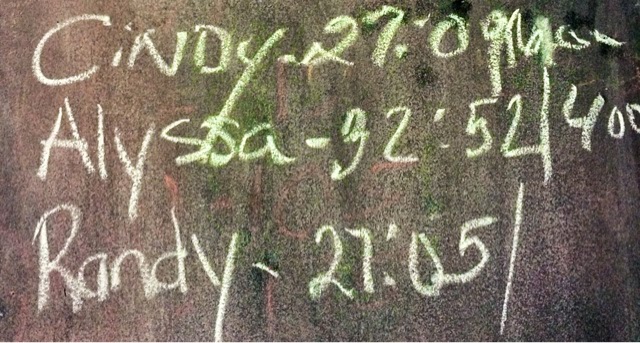 Cindy - 27:09
Alyssa - 32:52 | 400
Randy - 27:05 |